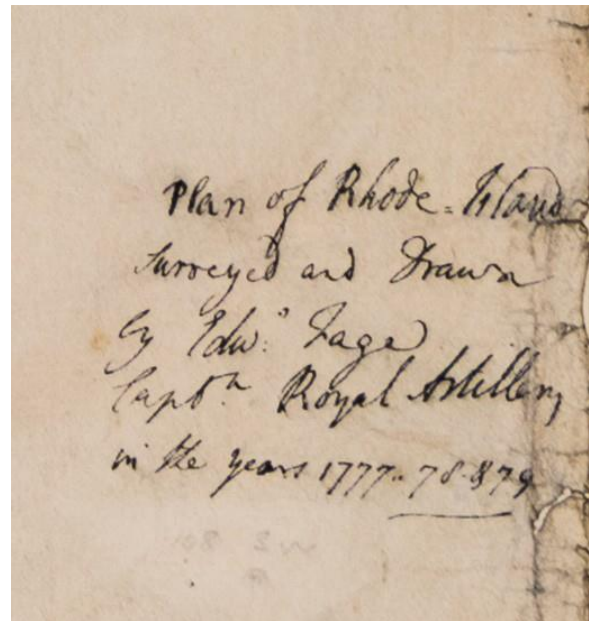 Plan of Rhode=Island
Surveyed and Drawn
by Edw:ᵈ Fage
Captⁿ Royal Artillery
in the years 1777.. 78 & 79